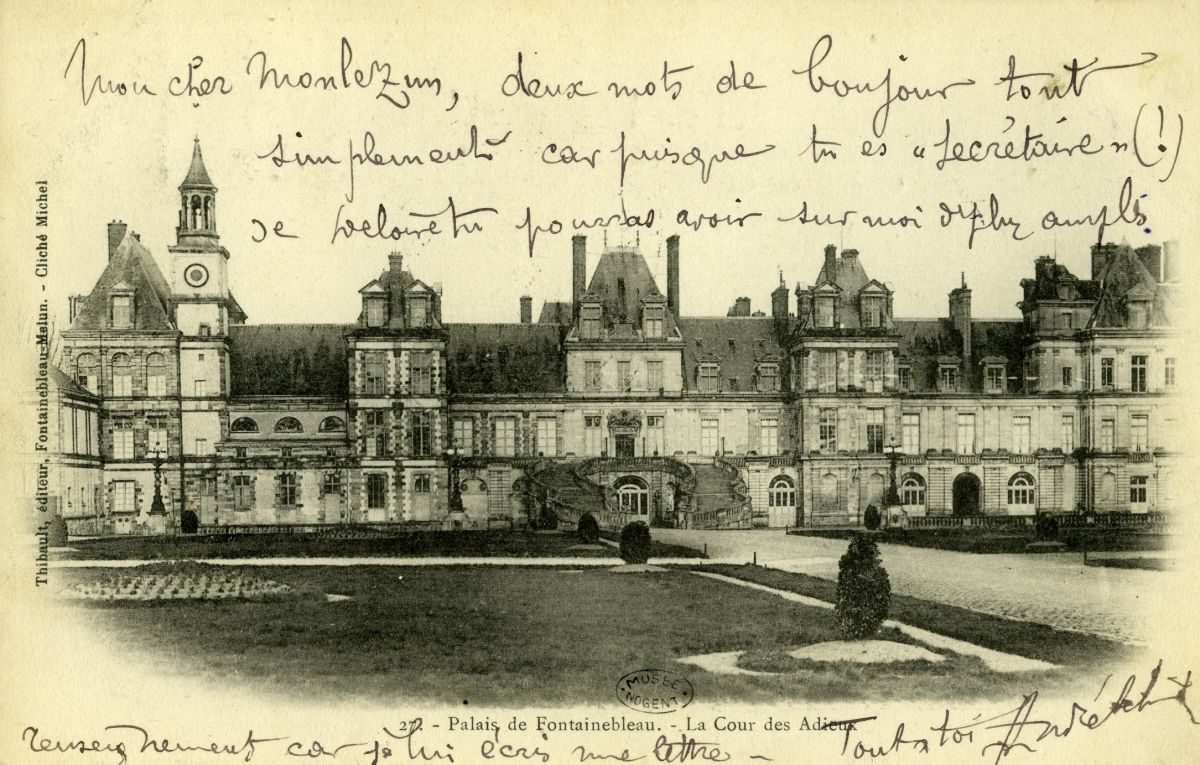 Mon cher Monlezun, deux mots de bonjour tout
simplement car puisque tu es "secrétaire" (!)
de tu pourras avoir sur moi d'
Thibault, éditeur, Fontainebleau-Melun. - Cliché Michel
MUSÉE
NOGENT
27. - Palais de Fontainebleau. - La Cour des Adieux
renseignement car je lui écris une lettre - Tout à toi